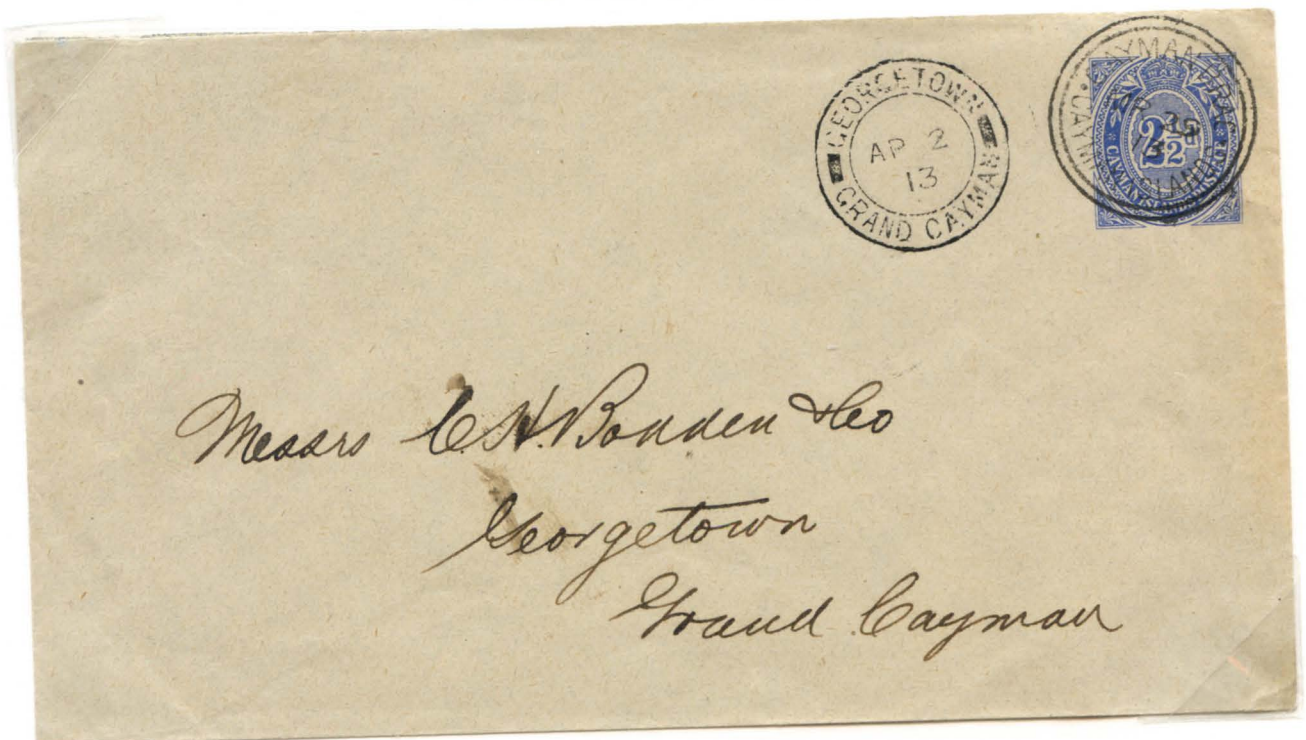 GEORGETOWN
AP 2
13
GRAND CAYMAN
CAYMAN BRAC
13
CAYMAN ISLANDS
2½d
CAYMAN ISLANDS POSTAGE
Messrs C. H. Bodden & Co
Georgetown
Grand Cayman